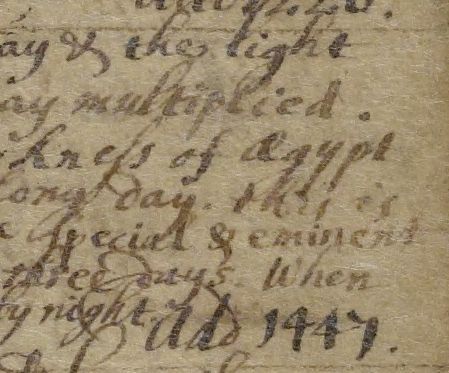 ay & the light
ay multiplied.
kness of Ægypt
long day. this is
e special & eminent
three days. When
by night. Add 1447.